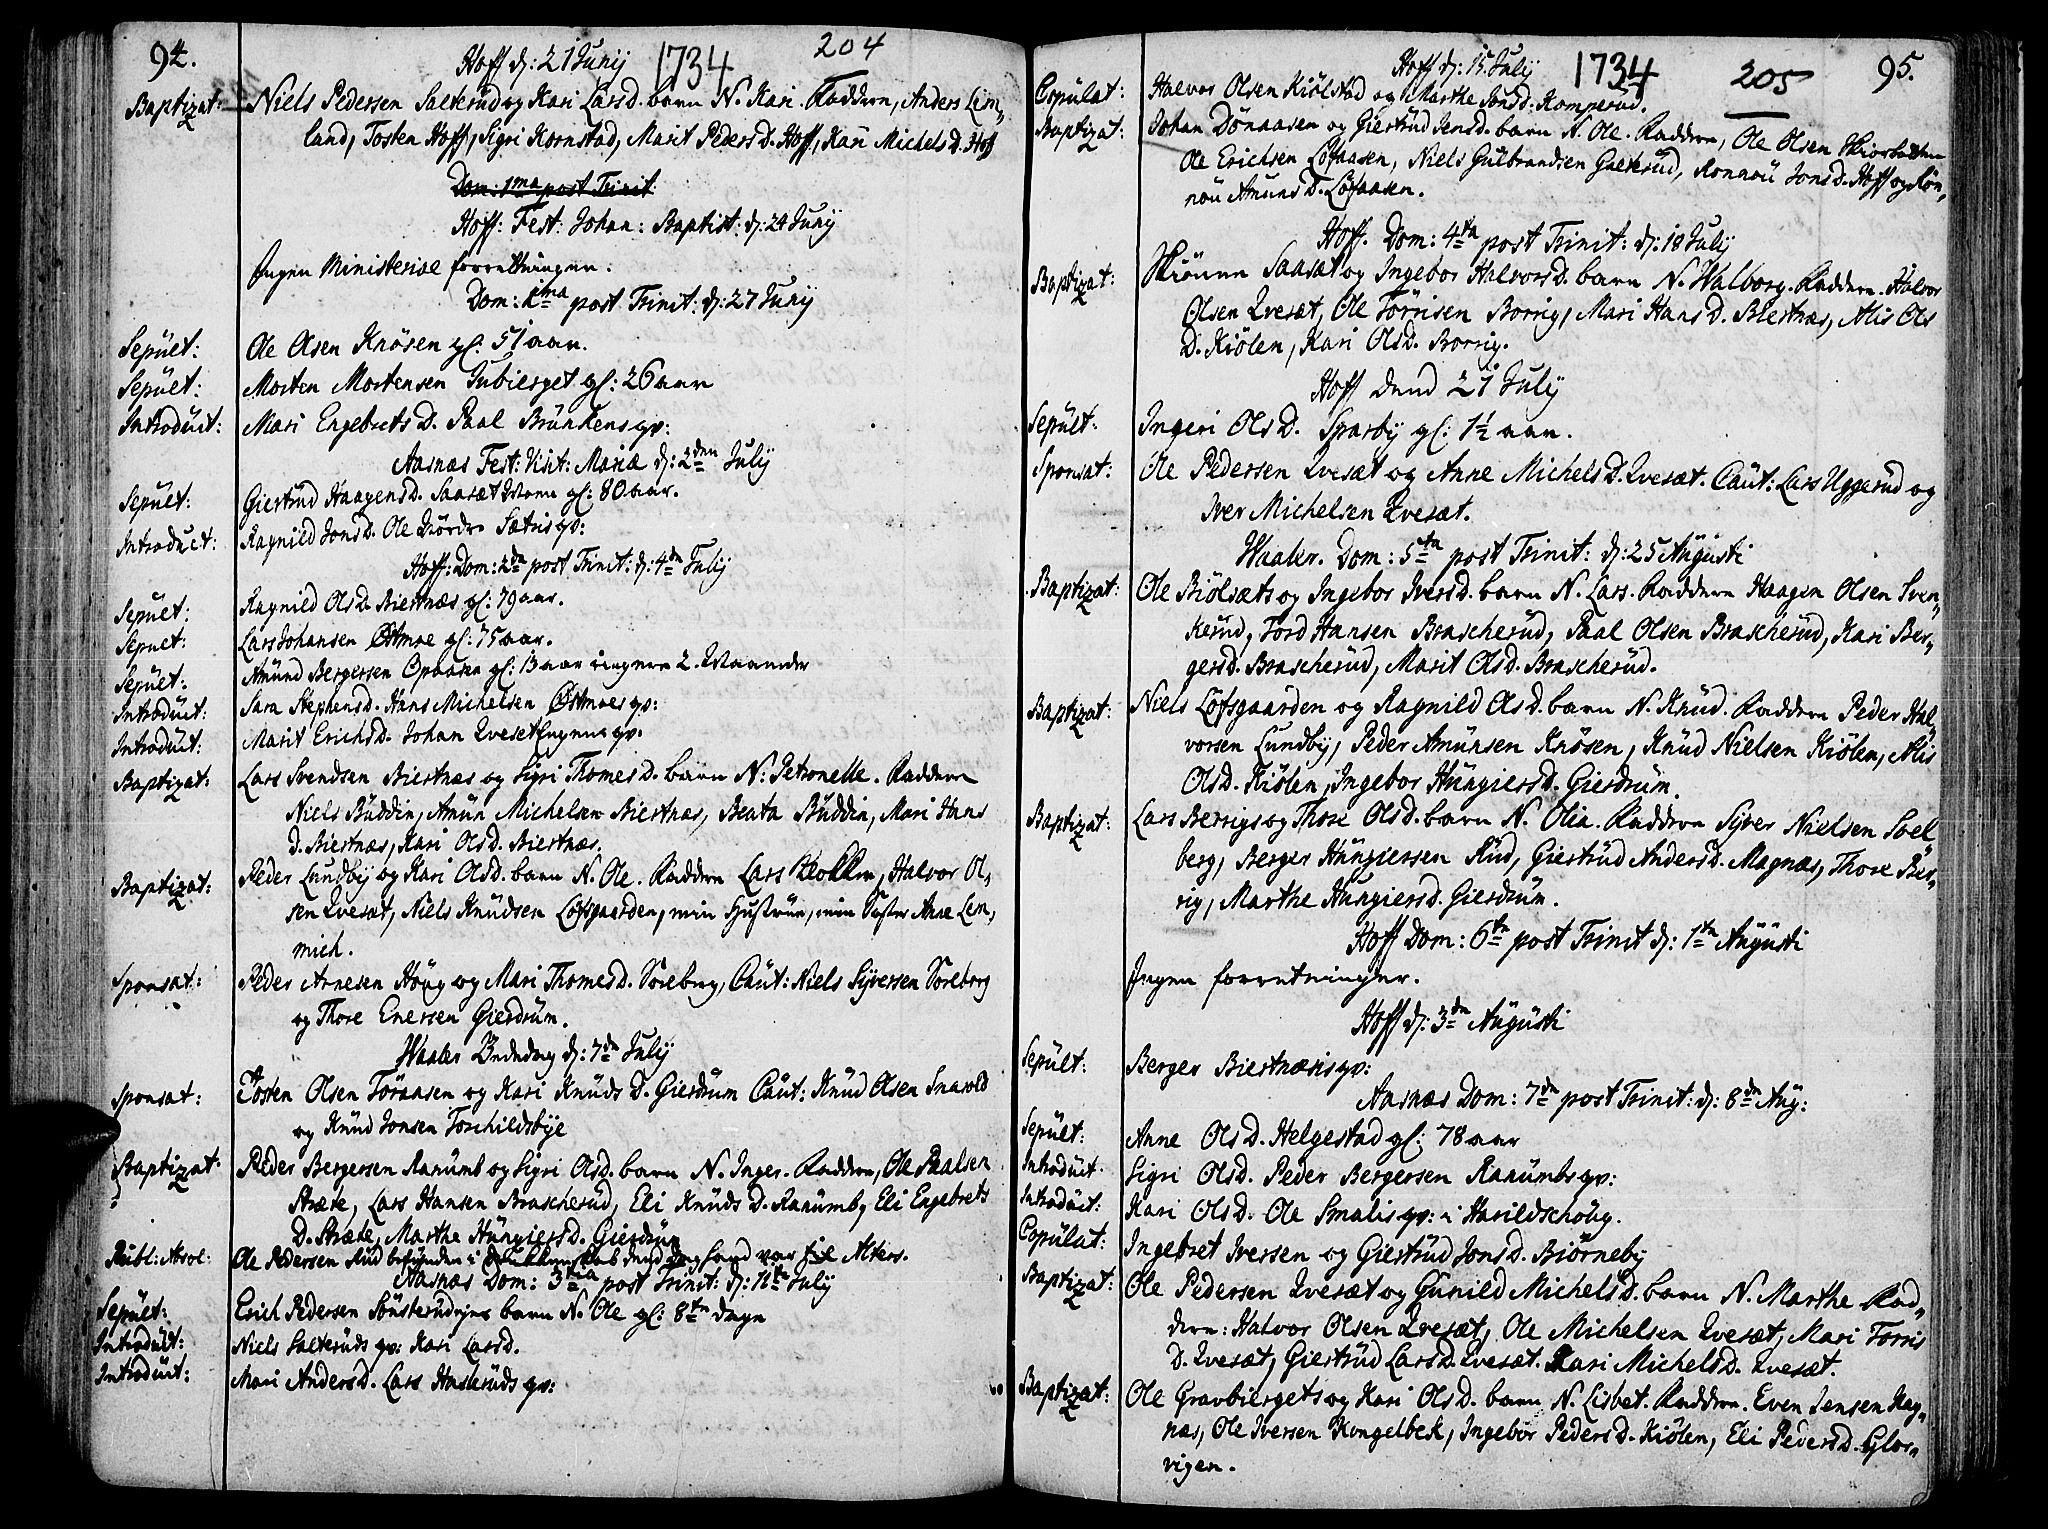 94.
Hoff d: 21 Junij 1734 204
Baptizat: Niels Pedersen Salterud og Kari Larsd. barn N. Kari. Faddern, Anders Lem,
land, Tosten Hoff, Sigri Kornstad, Marit Pedersd. Hoff, Kari Michelsd. Hoff
Dom: 1ma post Trinit:
Hoff: Fest: Johan: Baptist: d: 24 Junij
Ingen Ministeriae forrettninger.
Dom: 1ma post Trinit: d: 27 Junij
Sepult: Ole Olsen Knösen gl: 51 aar.
Sepult: Morten Mortensen Jubierget gl: 26 aar
Introduct: Mari Engebretsd. Paal Brünkens qv:
Aasnæs Fest: Visit: Mariæ d: 2den Julij
Sepult: Giertrud Haagensd. Saaset gl: 80 aar.
Introduct: Ragnild Jonsd. Ole Sætris qv:
Hoff: Dom: 2da post Trinit: d: 4de Julij
Sepult: Ragnild Olsd. Biertnæs gl: 79 aar.
Sepult: Lars Johansen Østmoe gl: 75 aar.
Sepult: Amünd Bergersen Opaasen gl: 13 aar ringere 2. Maaneder
Introduct: Sara Stephensd. Hans Michelsen Østmoes qv:
Introduct: Marit Erichsd. Johan Qveset Eugnens qv:
Baptizat: Lars Svendsen Biertnæs og Sigri Thomesd. barn N: Petronelle. Faddern
Niels Büddin, Amün Michelsen Biertnæs, Beata Büddin, Mari Hans
D. Biertnæs, Kari Olsd. Biertnæs.
Baptizat: Peder Lundbÿ og Kari Olsd. barn N. Ole. Faddern Lars Klokken, Halvor Ol,
sen Qvesæt, Niels Knüdsen Löfsgaarden, min Hustrüe, min Søster Anne Lem,
mich.
Sponsat: Peder Arnesen Höug og Mari Thomesd. Soreberg, Caut: Niels Syversen Soreberg
og Thore Enersen Gierdrüm.
Waaler Bededag d: 7de Julij
Sponsat: Tosten Olsen Töraasen og Kari Knüds D. Gierdrum Caut: Knud Olsen Snarold
og Knüd Jonsen Torchildsbye
Baptizat: Peder Bergersen Ranumb og Sigri Olsd. barn N. Inger. Faddern, Ole Paalsen
Stræte, Lars Hansen Braskerüd, Eli Knüds D. Ranumb, Eli Engebrets
D. Stræte, Marthe Hüngiersd. Gierdrüm
Publ: Absol: Ole Pedersen Rüd befünden i Drukkenskab dend dag hand var til Alters.
Aasnæs Dom: 3tia post Trinit: d: 11te Julij
Sepult: Erich Pedersen Sönsterudeijes barn N. Ole gl: 8te dage
Introduct: Niels Salteruds qv: Kari Larsd.
Introduct: Mari Andersd. Lars Haskeruds qv:
Hoff d: 15 Julij 1734 205 95.
Copulat: Halvor Olsen Kiölstad og Marthe Jonsd. Kamperud.
Baptizat: Johan Dönaasen og Giertrüd Jensd. barn N. Ole. Faddern, Ole Olsen
Ole Erichsen Löfaasen, Niels Gulbrandsen Galterud, Ronnou Jonsd. Hoff og Ron,
nou Amundsd. Löfaasen.
Hoff. Dom: 4ta post Trinit: d: 18 Julij
Baptizat: Saasæt og Ingebor Halvorsd. barn N. Walborg. Faddern. Halvor
Olsen Qvesæt, Ole Törrisen Borrig, Mari Hans D. Biertnæs, Alis Ols
D. Kiölen, Kari Olsd. Borrig.
Hoff dend 21 Julij
Sepult: Ingeri Olsd. Sparbÿ gl: 1½ aar.
Sponsat: Ole Pedersen Qvesæt og Anne Michelsd. Qvesæt. Caut: Lars Uggerud og
Iver Michelsen Qvesæt.
Waaler. Dom: 5ta post Trinit: d: 25 Augusti
Baptizat: Ole Biölsæts og Ingebor Iversd. barn N. Lars. Faddern Haagen Olsen Sven,
kerud, Tord Hansen Braskerud, Paal Olsen Braskerud, Kari Ber,
gersd. Braskerüd, Marit Olsd. Braskerud.
Baptizat: Niels Löfsgaarden og Ragnild Olsd. barn N. Knud. Faddern Peder Hal,
vorsen Lundbÿ, Peder Amunsen Knösen, Knüd Nielsen Kiölen, Alis
Olsd. Kiölen, Ingebor Hüngiersd. Gierdrüm.
Baptizat: Lars Berrigs og Thore Olsd. barn N. Olia. Faddern Syver Nielsen Soel
berg, Berger Hüngiersen Rüd, Giertrüd Andersd. Magnæs, Thore Ber,
rig, Marthe Hungiersd. Gierdrüm.
Hoff Dom: 6te post Trinit d: 1te Augusti
Ingen forretninger.
Hoff d: 3de Augusti
Sepult: Berger Biertnæsis qv:
Aasnæs Dom: 7de post Trinit: d: 8de Aug:
Sepult: Anne Olsd. Helgestad gl: 78 aar
Introduct. Sigri Olsd. Peder Bergersen Ranumbs qv:
Introduct: Kari Olsd. Ole Smalis qv: i Harildschoug.
Copulat: Ingebret Iversen og Giertrüd Jonsd. Biörneby
Baptizat: Ole Pedersen Qvesæt og Gunild Michelsd. barn N. Marthe Fad,
dern: Halvor Olsen Qvesæt, Ole Michelsen Qvesæt, Mari Torris
D. Qvesæt, Giertrüd Larsd. Qvesæt. Kari Michelsd. Qvesæt.
Baptizat: Ole Gravbiergets og Kari Olsd. barn N. Lisbet. Faddern. Even Jensen Hag,
næs, Ole Iversen Kongelbek, Ingebor Pedersd. Kiölen, Eli Pedersd. Glos,
vigen.